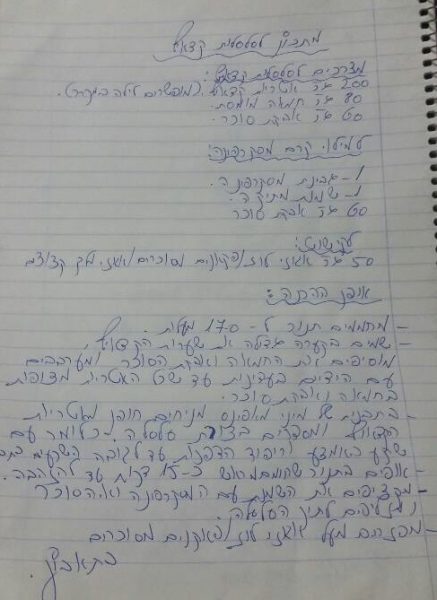 מתכון לסלסלות קדאיף
מצרכים לסלסלות קדאיף:
200 גר' אטריות קדאיף (מופשרים לילה במקרר).
80 גר' חמאה מומסת.
60 גר' אבקת סוכר
למילוי קרם מסקרפונה:
1- גבינת מסקרפונה.
1- שמנת מתוקה.
60 גר' אבקת סוכר
לקישוט:
50 גר' אגוזי לוז/פקאנים מסוכרים/אגוזי מלך קצוצים
אופן ההכנה:
- מחממים תנור ל- 170 מעלות.
- שמים בקערה גדולה את שערות הקדאיף,
מוסיפים את החמאה ואבקת הסוכר ומערבבים
עם הידיים בעדינות עד שכל האטריות מצופות
בחמאה ואבקת סוכר.
- בתבנית של מיני מאפינס מניחים חופן מאטריות
הקדאיף ומהדקים בצורת סלסלה. כלומר עם
שקע באמצע וריפוד הדפנות עד לגובה השקעים
- אופים בתנור שחומם מראש כ-15 דקות עד להזהבה.
- מקציפים את השמנת עם המסקרפונה ואת הסוכר
ומזלפים לתוך הסלסלה.
- מפזרים מעל אגוזי לוז/פאקנים מסוכרים
בתאבון.